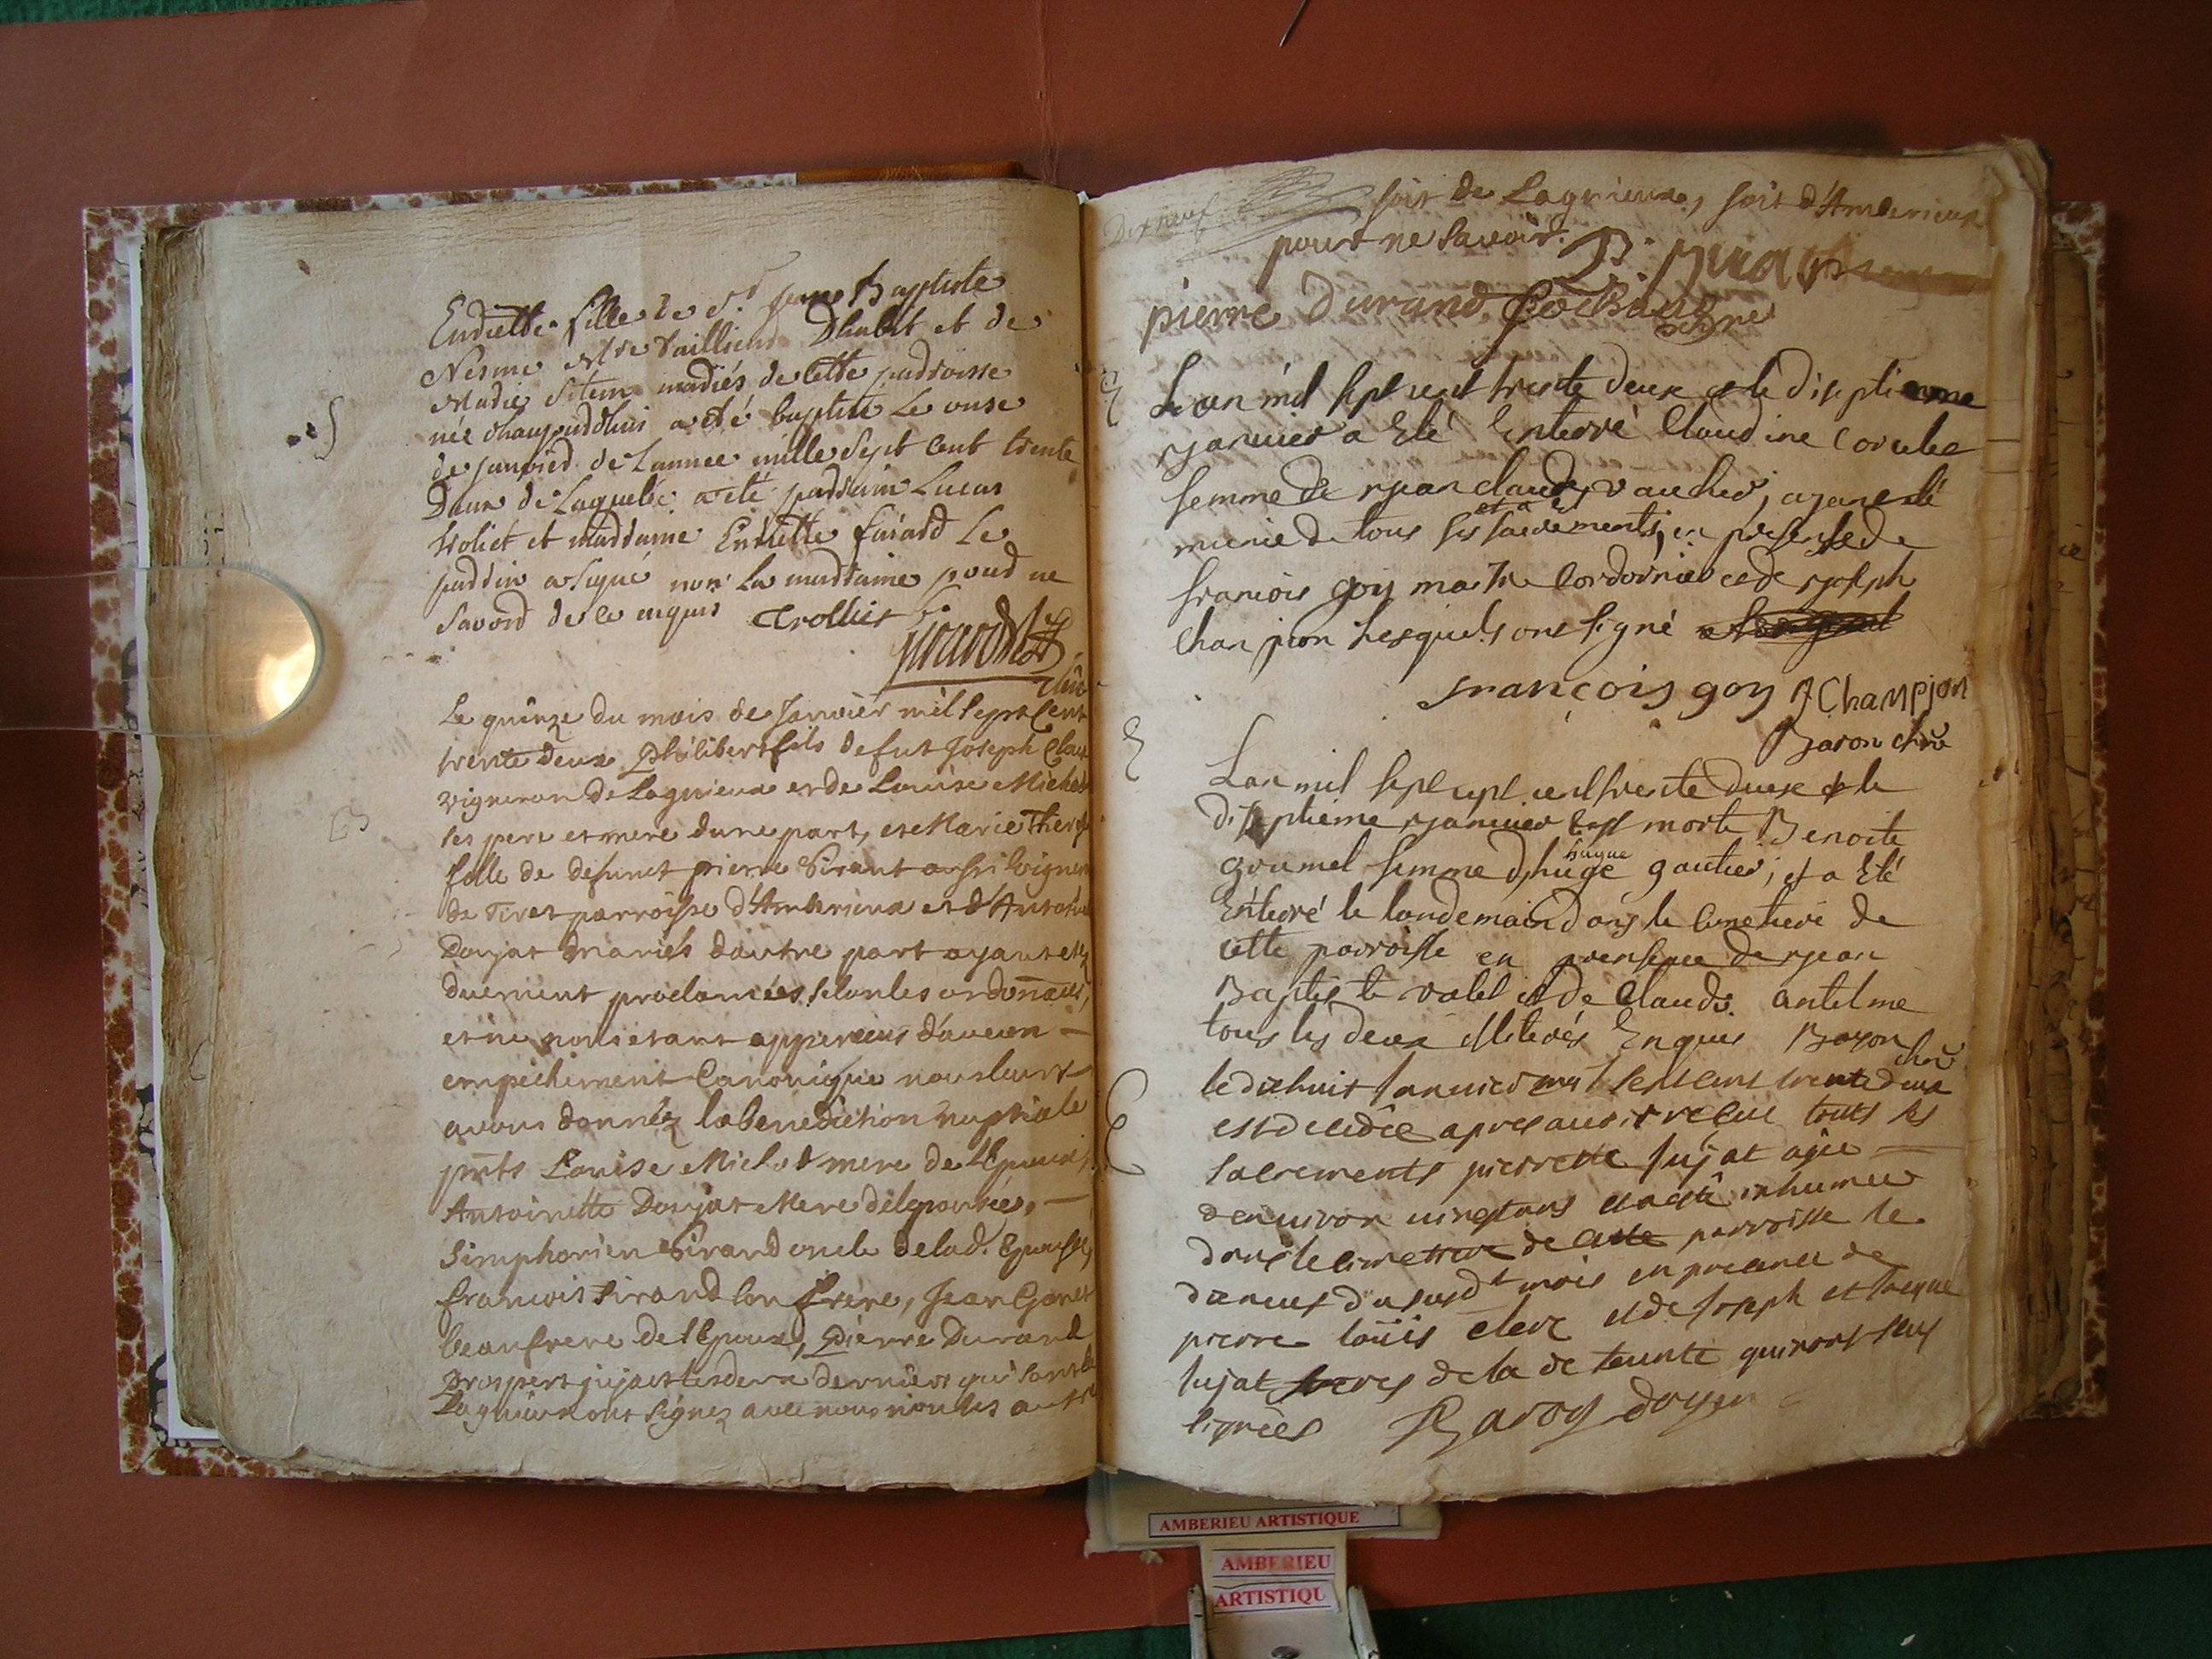 fille de Sr Jean Baptiste
Nesme Mtre taillieur d'habit et de
Marie mariés de cette parroisse
née a eté baptisé Le onse
de janvier de Lannee mille Sept Cent trente
Deux de Laquelle a eté parrain Lucas
troliet et marraine le
parrin a signé non La marraine pour ne
Savoir de ce enquis Trolliet
Le quinze du mois de Janvier mil sept Cent
trente deux Philibert fils de fut Joseph
vigneron de Lagnieux et de Louise Michel
ses pere et mere dune part, et Marie
fille de defunct pierre Sirant aussi vigneron
de Tiret parroisse d'Amberieux et d'Antoinette
Doujat mariés dautre part ayant esté
duement proclamées selon les ordonnances,
et ne nous etant apperceus d'aucun
empechement Canonique nous leurs
avons donnéz la benediction nuptiale
pnts Louise Michel mere de l'Epoux,
Antoinette Doujat Mere de lepousée,
Simphorien Sirand oncle de lad. Epouse,
francois Sirand son frere, Jean
beaufrere de l'Epoux, Pierre Durand
Prospert les deux derniers qui sont de
Lagnieux ont signez avec nous non les autres
soit de Lagnieux, soit d'Amberieux
pour ne savoir.
pierre Durand
L'an mil sept cent trente deux et le diseptieme
janvier a Eté Enterré Claudine
femme de jean claude vaucher, ayant eté
munie de tous ses sacrements, en presense de
francois goy maitre Cordonnier et de joseph
Chanpion Lesquels ont signé
françois goy J Champion
Baron
Lan mil sept cent trente deux et le
diseptieme janvier est morte Benoite
grumel femme d'huge hugue gautier, et a Eté
Enterré le landemain dans le Cimetiere de
cette parroisse en presence de jean
Baptiste valet et de Claude antelme
tous les deux illiterés Enquis Baron
le dixhuit Janvier mil sept cent trente deux
est decedée apres avoir receu touts les
sacrements pierrette sujat agée
denviron vingt ans et a eté inhumée
dans le cimettiere de cette parroisse le
dix neuf du susdt mois en presence de
pierre loüis clerc et de Joseph et
sujat freres de la defunte qui nont sceu
signées Baron doyen
AMBERIEU ARTISTIQUE
AMBERIEU
ARTISTIQU